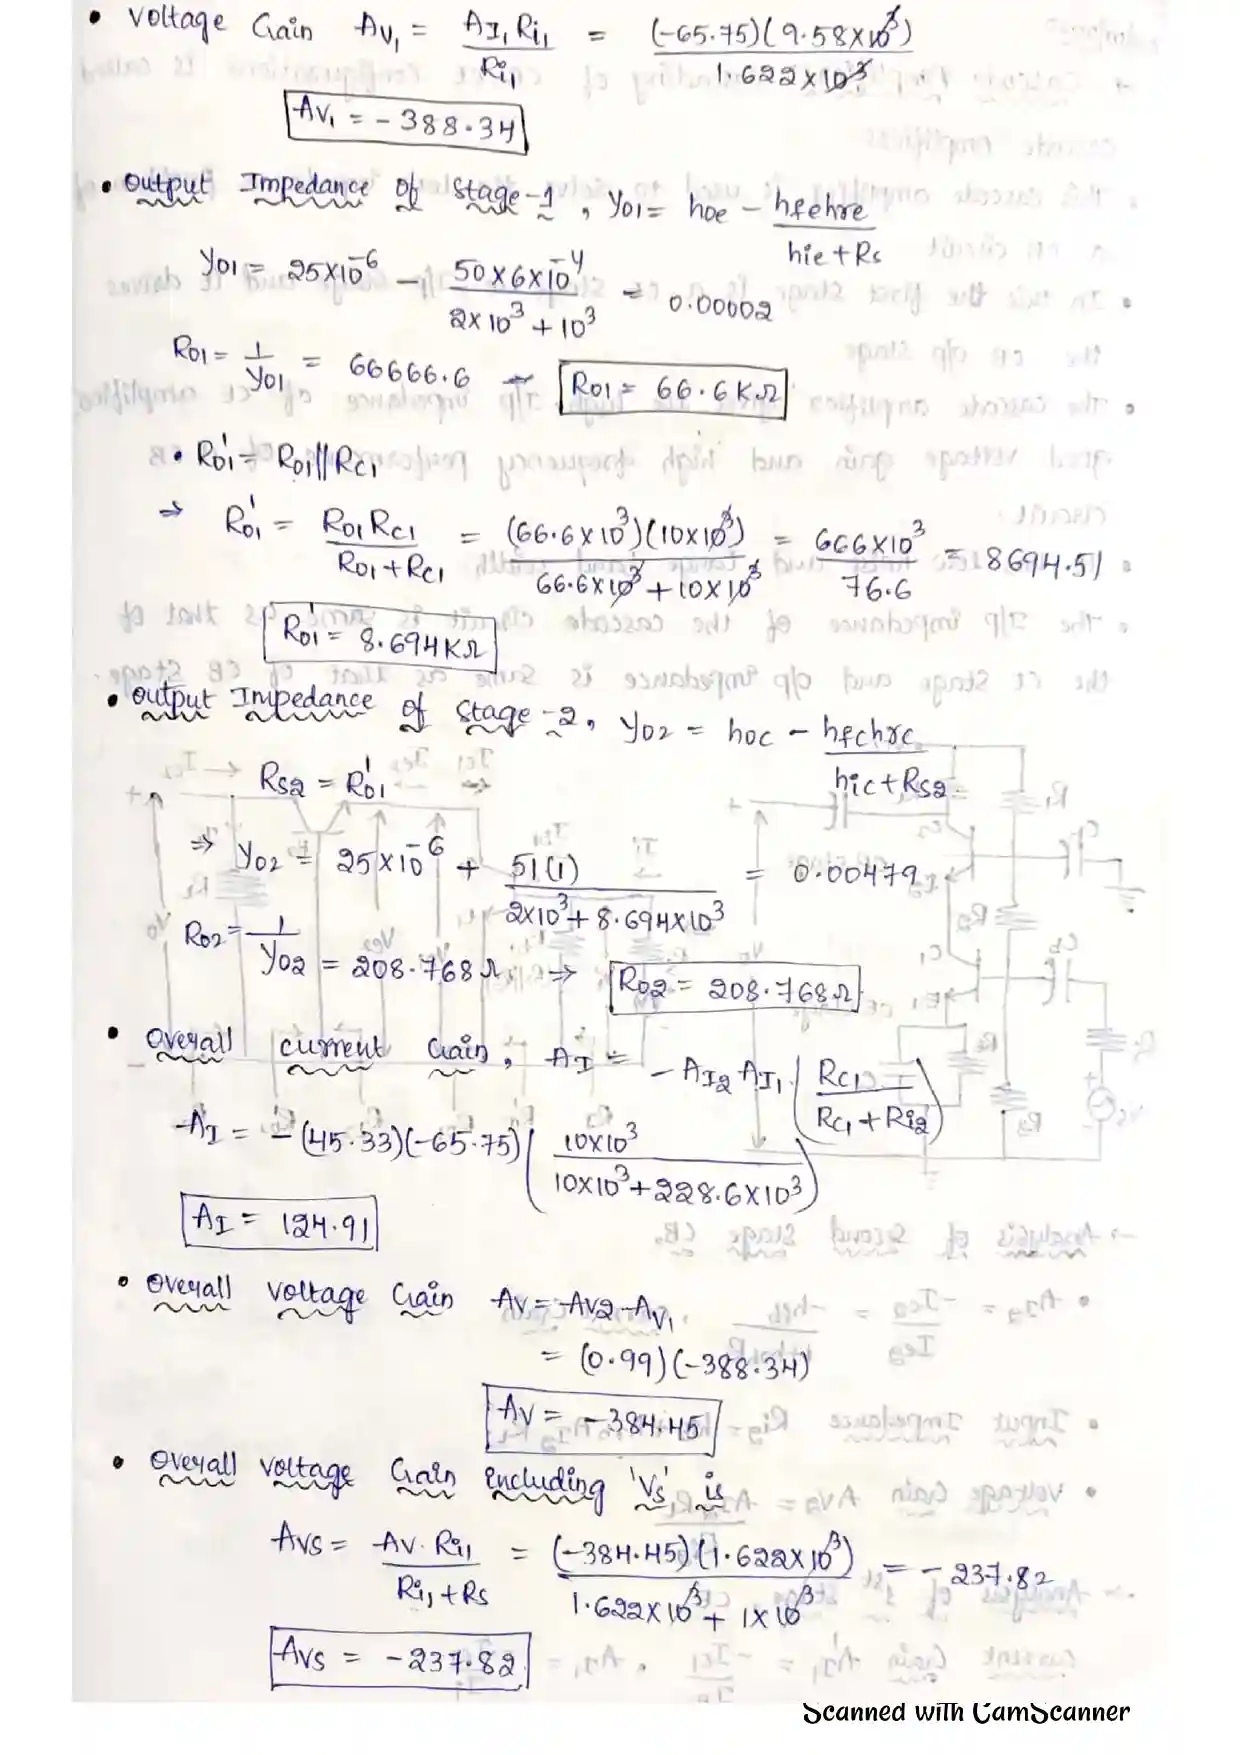 • Voltage Gain Av₁ = AI₁ Ri₁ / Ri₁ = (-65.75)(9.58×10³) / 1.622×10³
Av₁ = -388.34
• Output Impedance of Stage-1, Yo1 = hoe - hfehre / hie+Rs
Yo1 = 25×10⁻⁶ - 50×6×10⁻⁴ / 2×10³+10³ = 0.00002
Ro1 = 1/Yo1 = 66666.6 - Ro1 = 66.6KΩ
• Ro1' = Ro1||Rc1
⇒ Ro1' = Ro1 Rc1 / Ro1+Rc1 = (66.6×10³)(10×10³) / 66.6×10³+10×10³ = 666×10³ / 76.6 = 8694.51
Ro1' = 8.694KΩ
• Output Impedance of Stage-2, Yo2 = hoc - hfchrc / hic+Rs2
Rs2 = Ro1'
⇒ Yo2 = 25×10⁻⁶ + 51(1) / 2×10³+8.694×10³ = 0.00479
Ro2 = 1/Yo2 = 208.768Ω ⇒ Ro2 = 208.768Ω
• Overall Current Gain, AI = -AI2 AI1 (Rc1 / Rc1+Ri2)
AI = -(45.33)(-65.75)(10×10³ / 10×10³+228.6×10³)
AI = 124.91
• Overall Voltage Gain Av = Av2 Av₁
= (0.99)(-388.34)
Av = -384.45
• Overall Voltage Gain including 'Vs' is
Avs = Av. Ri1 / Ri1+Rs = (-384.45)(1.622×10³) / 1.622×10³+1×10³ = -237.82
Avs = -237.82
Scanned with CamScanner